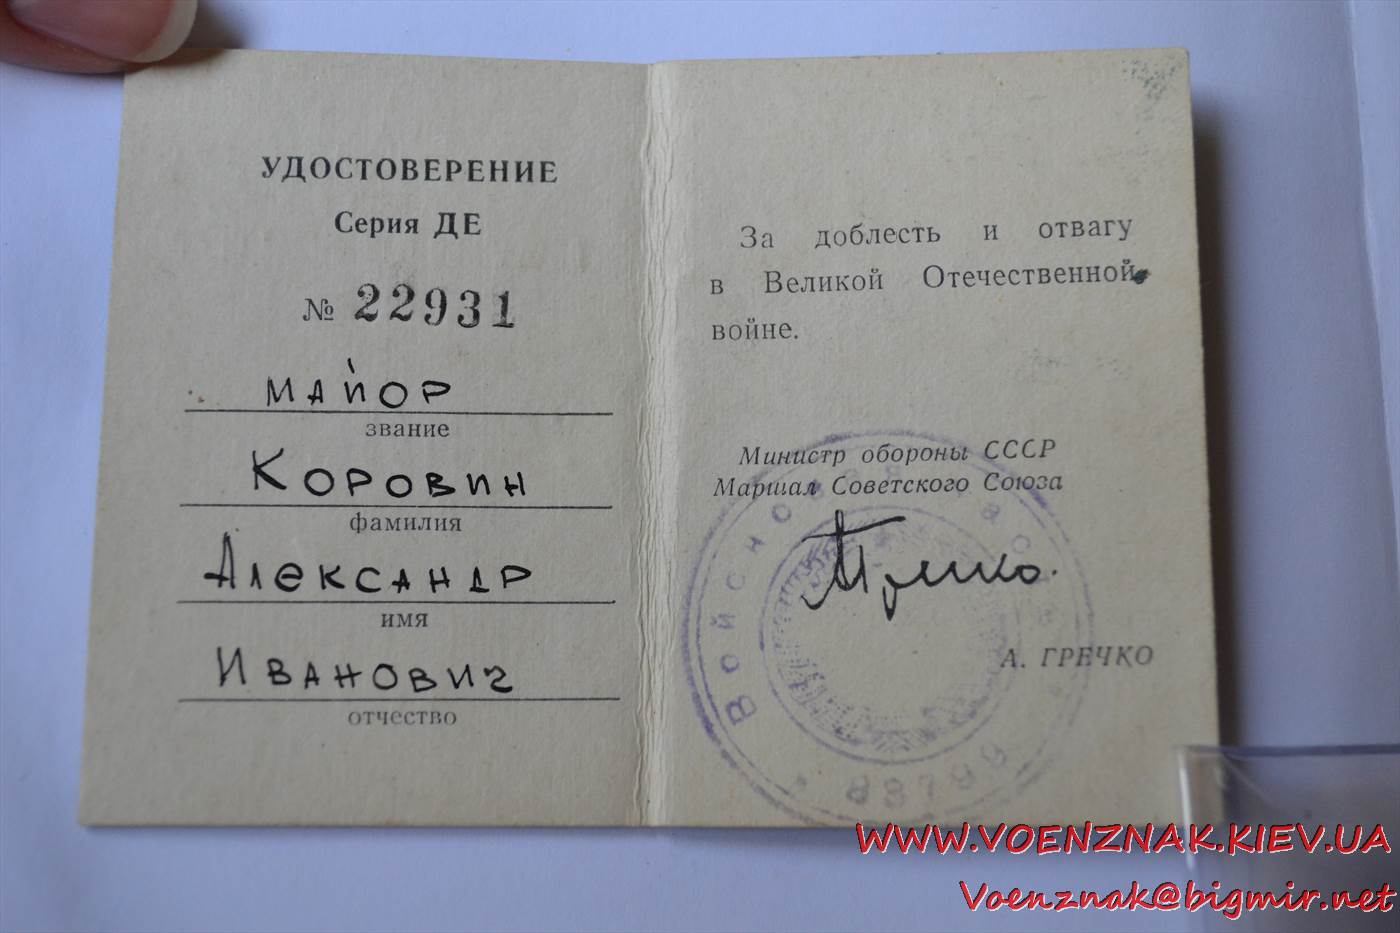 УДОСТОВЕРЕНИЕ
Серия ДЕ
№ 22931
майор
звание
Коровин
фамилия
Александр
имя
Иванович
отчество
За доблесть и отвагу
в Великой Отечественной
войне.
Министр обороны СССР
Маршал Советского Союза
А. ГРЕЧКО
Войсковая часть
WWW.VOENZNAK.KIEV.UA
Voenznak@bigmir.net